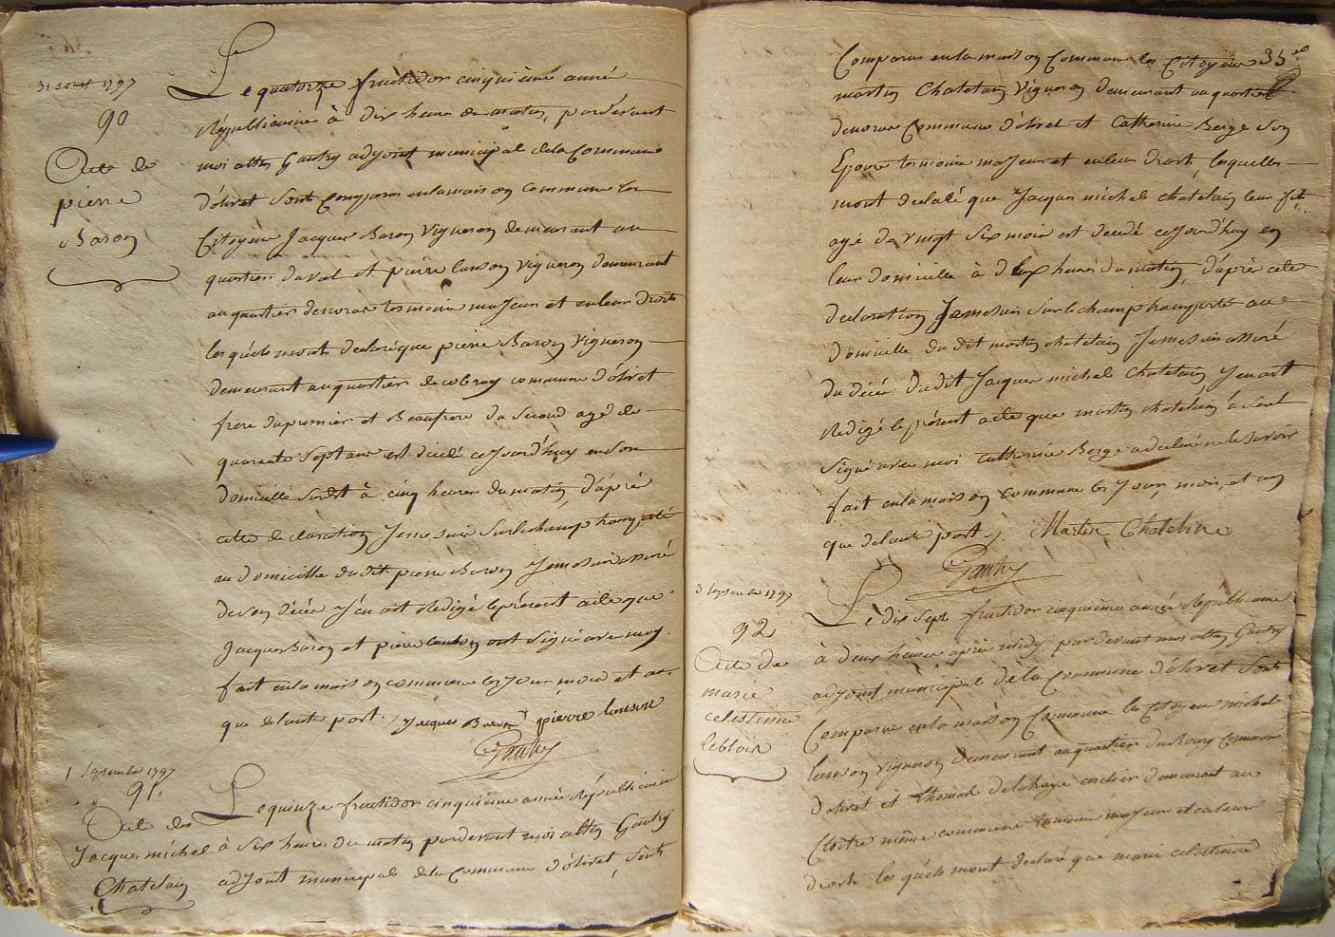 31 aout 1797
90
Acte de
pierre
Baron
Le quatorze fructidor cinquieme anné
Républicaine à dix heure du matin, pardevant
moi altin Gautry adjoint municipal dela Commune
d'olivet sont Comparus enlamaison commune les
Citoyens Jacques Baron Vigneron demeurant au
quartier daval et pierre lanson vigneron demeurant
au quartier temoins majeurs et enleur droits
les quéls mont declaré que pierre Baron Vigneron
demeurant auquartier de commune d'olivet
frere dupremier et Beaufrere du Second agé de
quarante sept ans est décédé cejourd'huy enson
domicille susdit à cinq heures du matin, d'aprè
cette declaration Jemesuis surlechamp transporté
au domicille dudit pierre Baron Jemesuis assuré
deson décée J'en ait Redigé leprésent acte que
Jacques Baron et pierre lanson ont signé avec moy
fait enlamaison commune les Jour mois et an
que delautre part. Jacques Baron pierre lanson
Gautry
1 septembre 1797
91.
Acte de
Jacques michel
Chatelain
Le quinze fructidor cinquième année Républicaine
à six heures du matin pardevant moi altin Gautry
adjoint municipale dela Commune d'olivet, sont
35
Comparus enla maison Commune les Citoyens
martin Chatelain Vigneron demeurant auquartier
Commune d'olivet et Catherine Berge son
Epouse temoins majeurs et enleur droits, lesquelles
mont declaré que Jacques michel chatelain leur fils
agé de vingt six mois est décédé cejourd'huy en
leur domicille à heures du matin, d'après cete
declaration Jemesuis surlechamp transporté au
domicille du dit martin chatelain Jemesuis assuré
du décée dudit Jacques michel Chatelain J'en ait
Redigé le présent acte que martin chatelain a seul
signé avec moi Catherine Berge a declaré ne le savoir
fait enlamaison commune les Jour, mois, et an
que delautre part. Martin Chatelain
Gautry
3 septembre 1797
92
Acte de
marie
celestinne
leblois
Le dix sept fructidor cinquième année Républicaine
à deux heures après midy pardevant moi altin Gautry
adjoint municipale de la Commune d'olivet sont
Comparus enla maison Commune les Citoyens michel
lanson vigneron demeurant auquartier du Bourg Commune
d'olivet et thomas delahaye demeurant au
Cloitre même commune temoins majeurs et enleur
droits les quéls mont declaré que marie celestinne